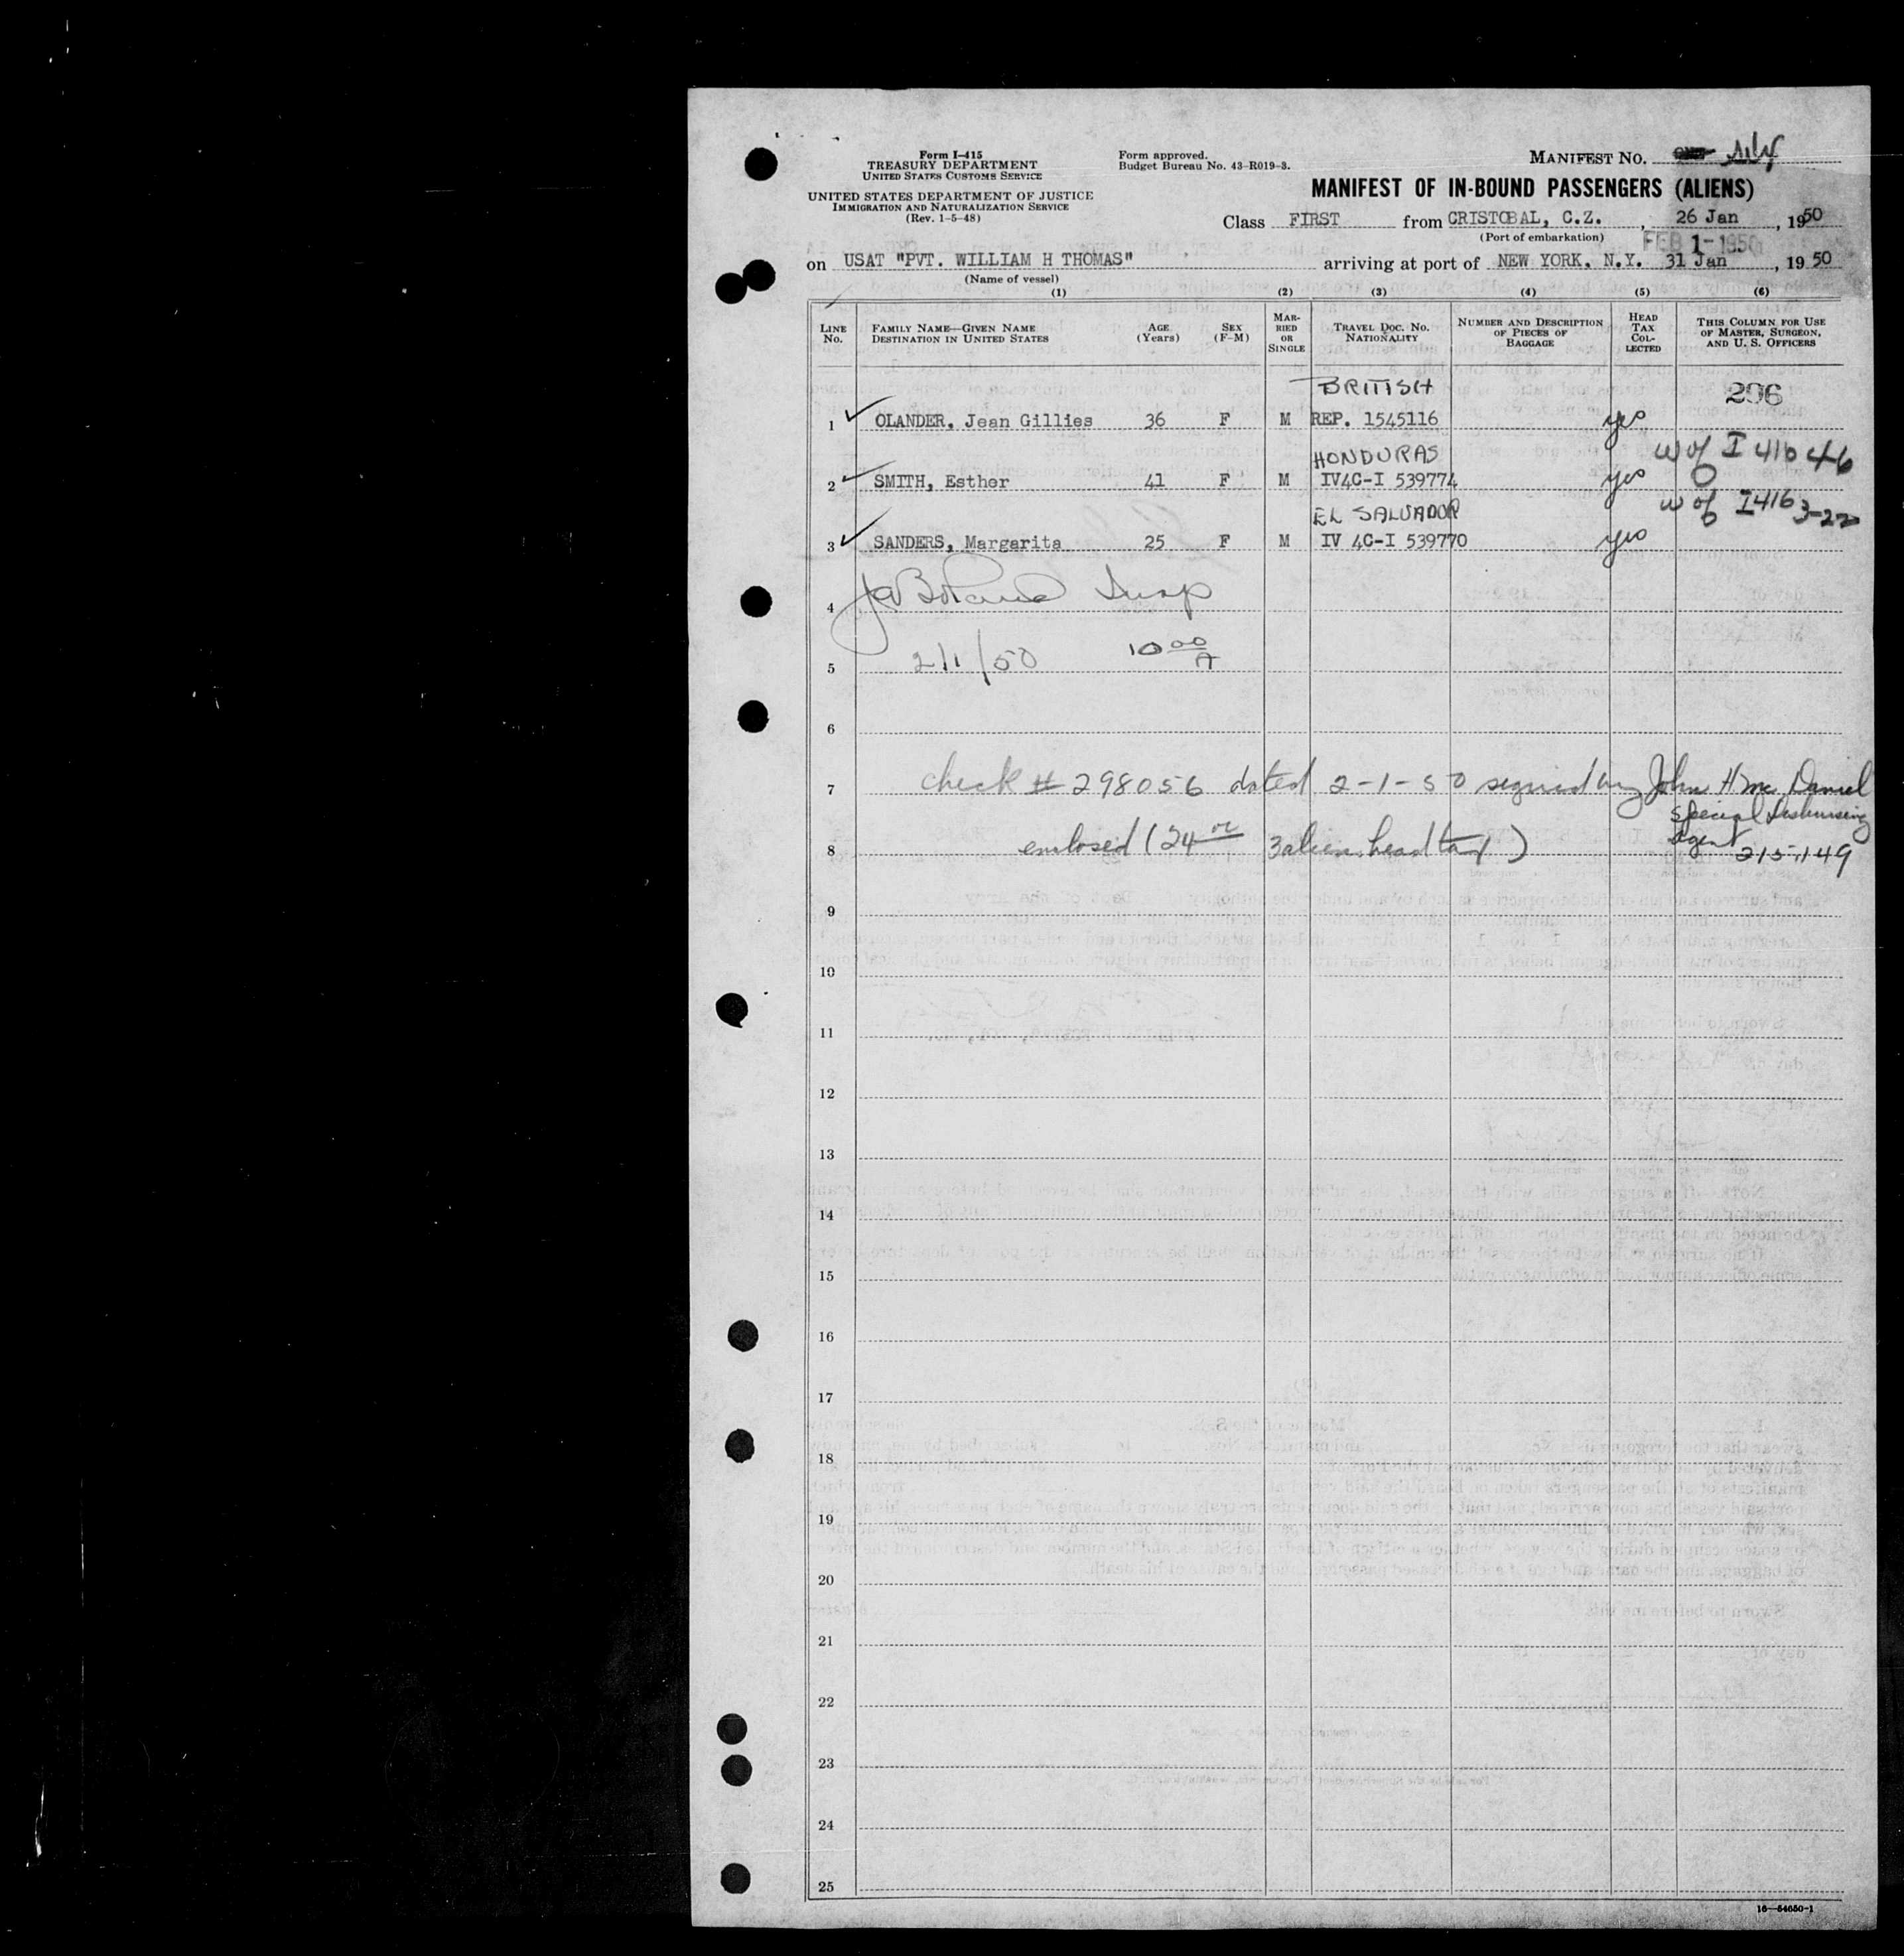 Form I-415
TREASURY DEPARTMENT
UNITED STATES CUSTOMS SERVICE
UNITED STATES DEPARTMENT OF JUSTICE
IMMIGRATION AND NATURALIZATION SERVICE
(Rev. 1-5-48)
Form approved.
Budget Bureau No. 43-R019-3.
MANIFEST NO.
MANIFEST OF IN-BOUND PASSENGERS (ALIENS)
Class FIRST from CRISTOBAL, C.Z., 26 Jan, 1950
(Port of embarkation)
FEB 1-1950
on USAT "PVT. WILLIAM H THOMAS" arriving at port of NEW YORK, N.Y. 31 Jan, 1950
(Name of vessel)
(1) (2) (3) (4) (5) (6)
LINE No. FAMILY NAME—GIVEN NAME DESTINATION IN UNITED STATES AGE (Years) SEX (F-M) MARRIED OR SINGLE TRAVEL DOC. NO. NATIONALITY NUMBER AND DESCRIPTION OF PIECES OF BAGGAGE HEAD TAX COLLECTED THIS COLUMN FOR USE OF MASTER, SURGEON, AND U. S. OFFICERS
BRITISH 296
1 OLANDER, Jean Gillies 36 F M REP. 1545116 yes
HONDURAS w of I 416 46
2 SMITH, Esther 41 F M IV4C-I 539774 yes
EL SALVADOR w of I416 3-22
3 SANDERS, Margarita 25 F M IV 4C-I 539770 yes
4 Insp
5 2/1/50 10 00 A
6
7 check # 298056 dated 2-1-50 signed by John H Mc Daniel
Special Disbursing
Agent
8 enclosed (24 00 3 alien head tax) 215-149
9
10
11
12
13
14
15
16
17
18
19
20
21
22
23
24
25
16—54650-1